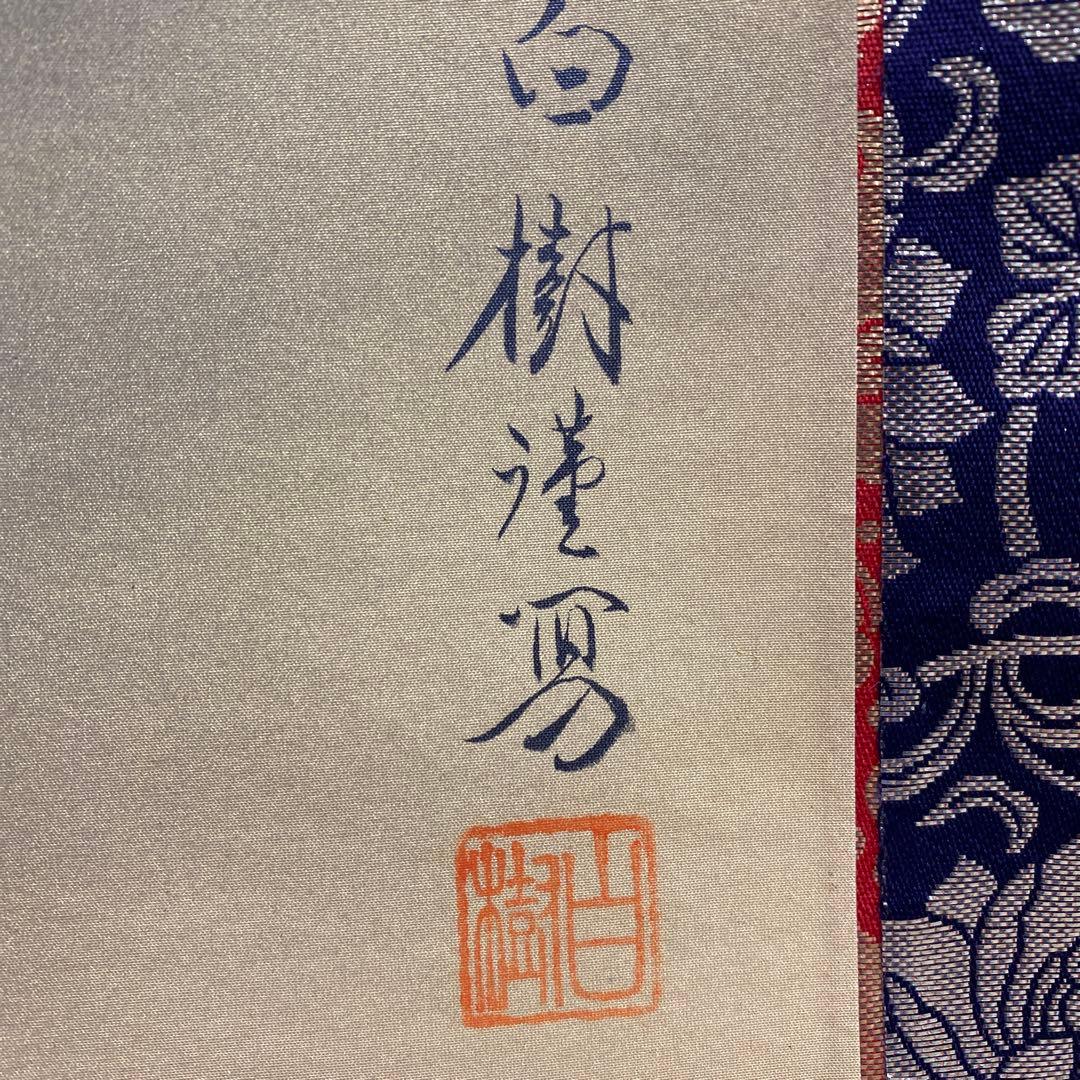 白樹謹寫
白樹